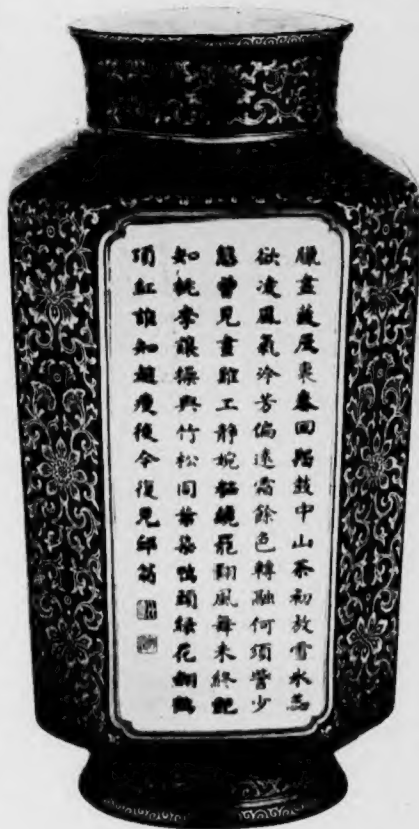 臘盡東春回鼓中山茶初放雪水
欲凌風氣冷芳偏遠霜餘色轉融何須少
態曾見畫難工靜婉繞翻風未終
如桃李操與竹松同葉染鴨頭綠花鶴
頂紅誰知趙瘦後今復見邱翁